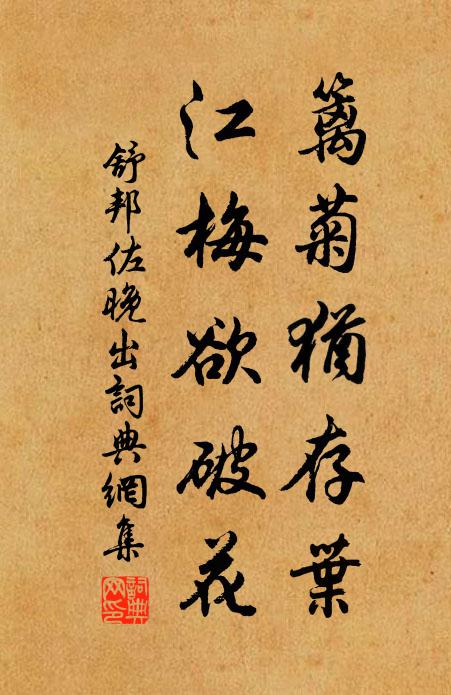 籬菊猶存葉
江梅欲破花
舒邦佐晚出詞典網集
詞典網印